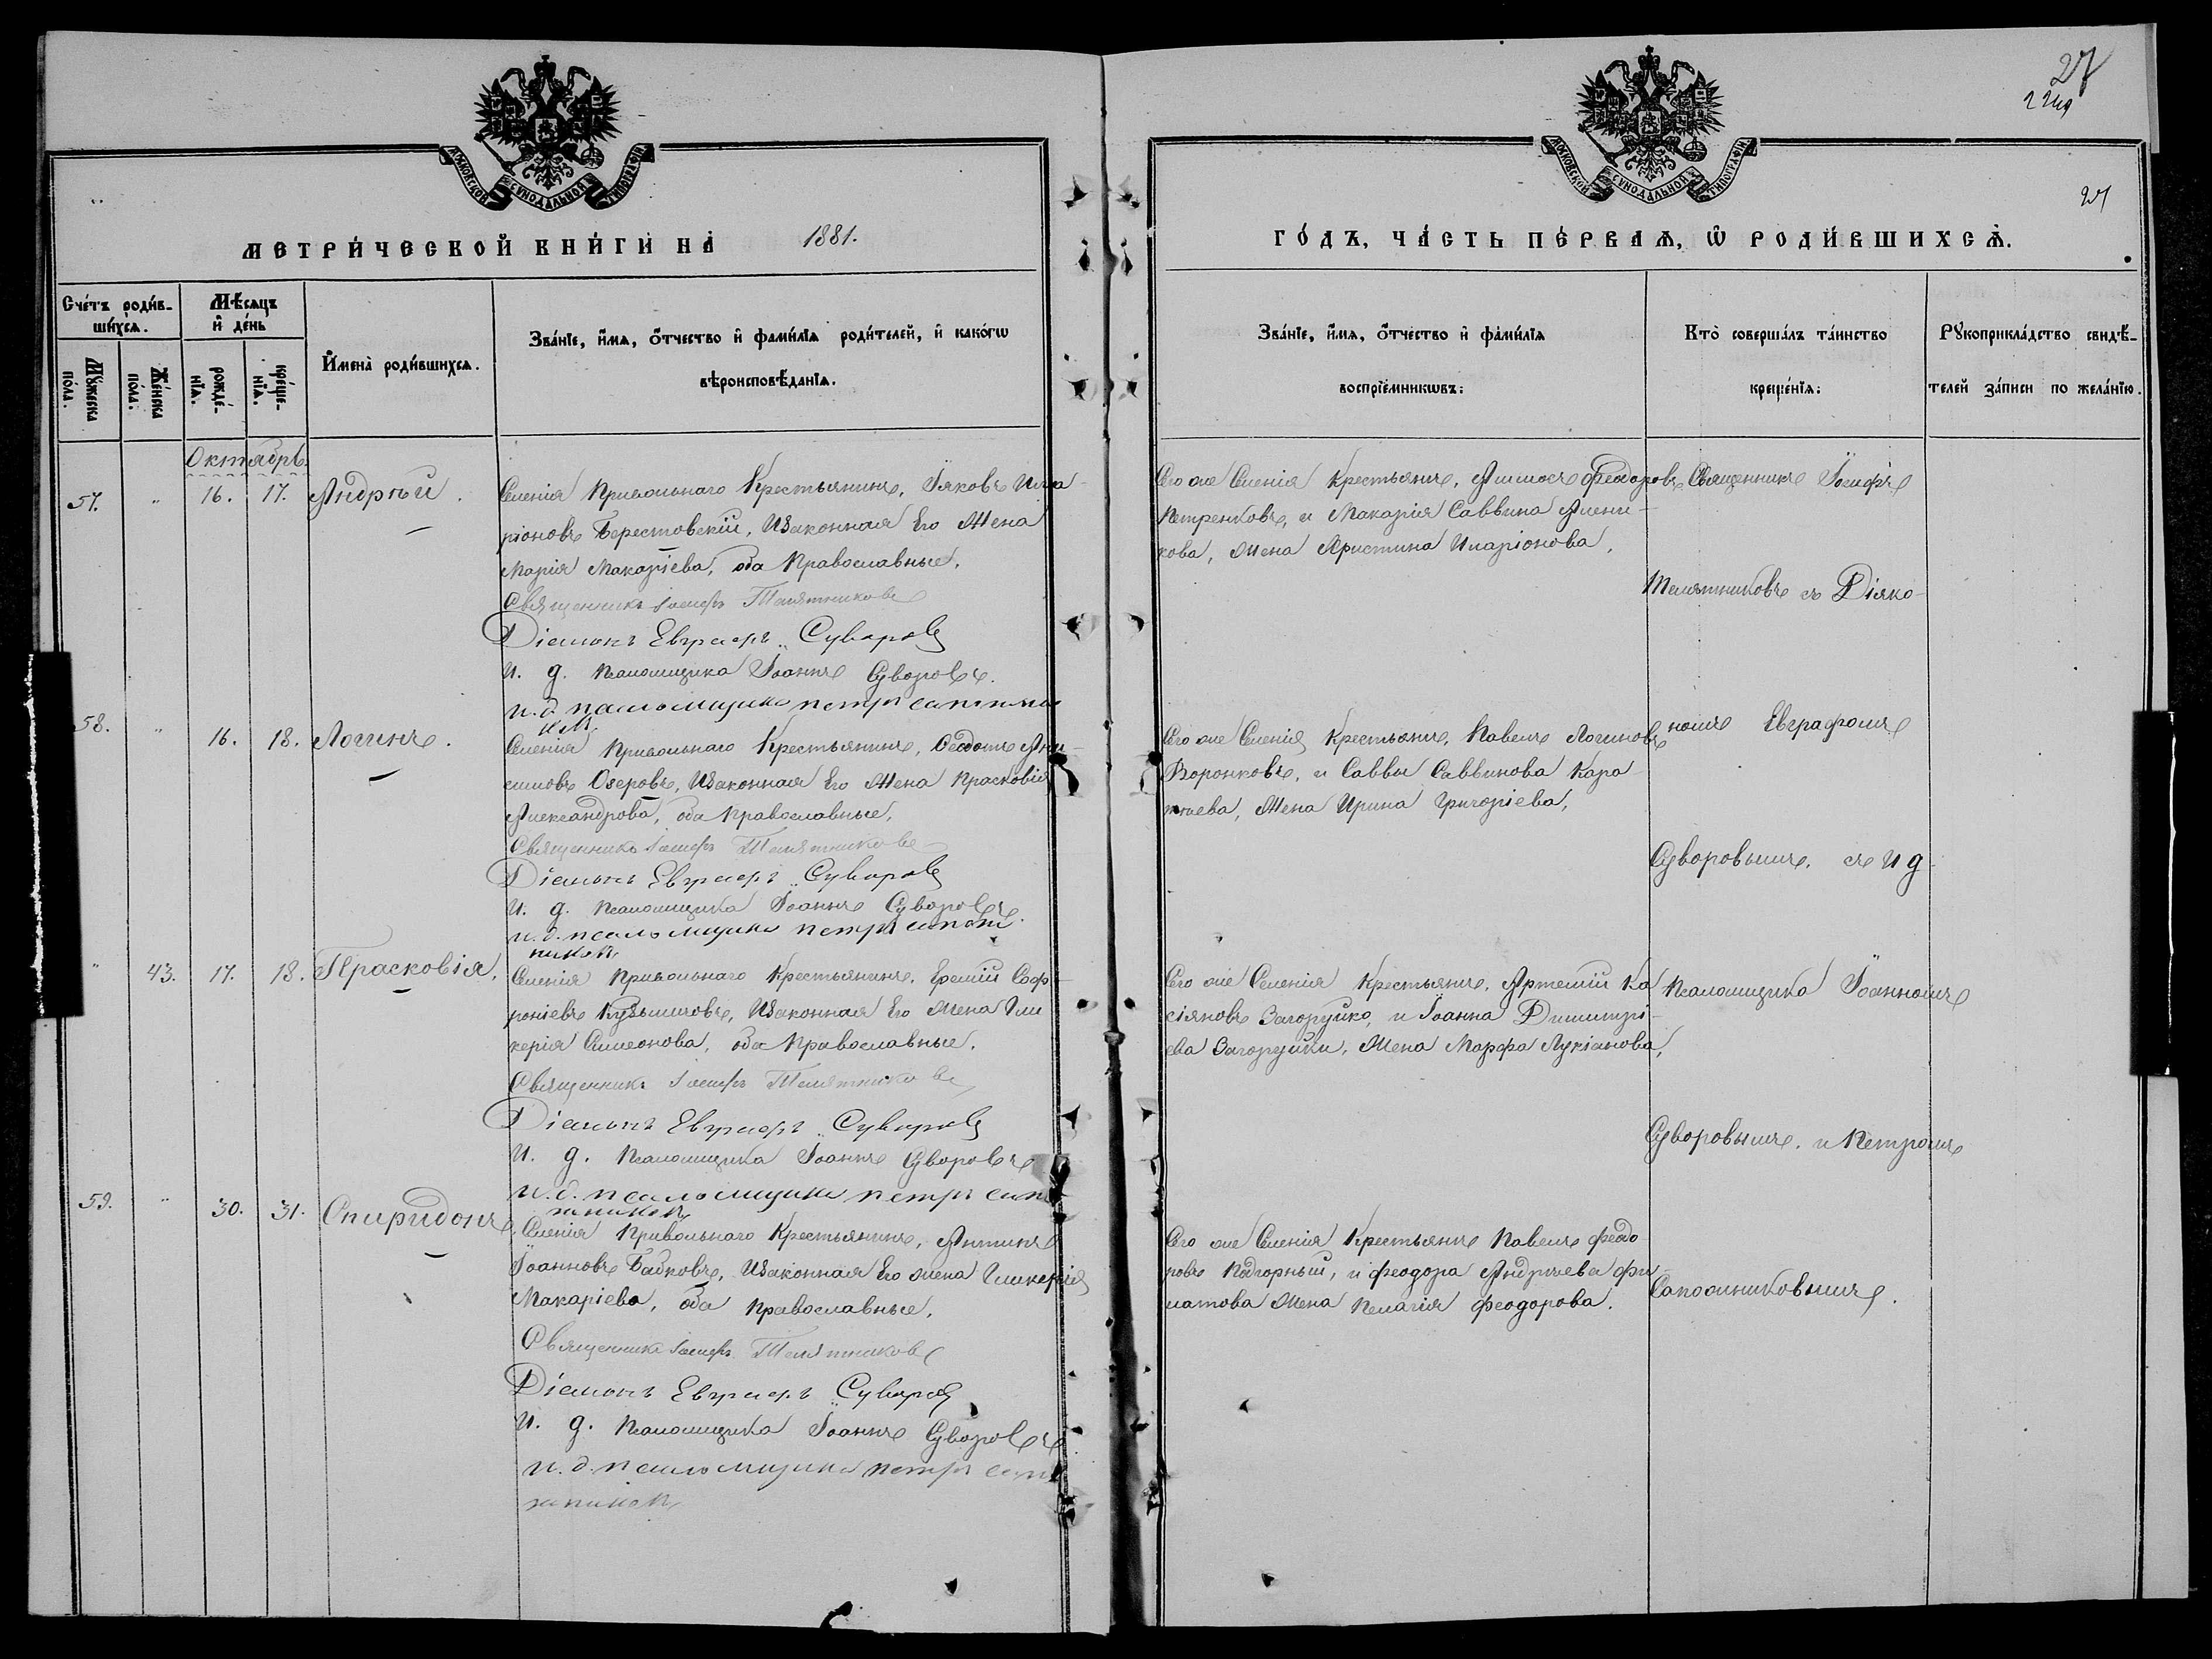 27
224
27
МОСКОВСКОЙ СѴНОДАЛЬНОЙ ТИПОГРАФІИ
МОСКОВСКОЙ СѴНОДАЛЬНОЙ ТИПОГРАФІИ
МЕТРИ́ЧЕСКОЙ КНИ́ГИ НА̀ 1881.
ГО́ДЪ, ЧА́СТЬ ПЕ́РВАѦ, Ѡ҆ РОДИ́ВШИХСѦ.
Сче́тъ роди́в-
шихсѧ.
Му́жеска
по́ла.
Же́нска
по́ла.
Мѣ́сѧцъ
и҆ де́нь
рожде́-
нїѧ.
креще́-
нїѧ.
И҆мена̀ роди́вшихсѧ.
Зва́нїе, и҆́мѧ, ѻ҆́тчество и҆ фами́лїѧ роди́телей, и҆ како́гѡ
вѣроисповѣ́данїѧ.
Зва́нїе, и҆́мѧ, ѻ҆́тчество и҆ фами́лїѧ
воспрїе́мникѡвъ:
Кто̀ соверша́лъ та́инство
креще́нїѧ:
Рꙋкоприкла́дство свидѣ́-
телей за́писи по жела́нїю.
Октябрь.
57. " 16. 17. Андрѣй.
Селенія Привольнаго Крестьянинъ, Іяковъ Ила-
ріоновъ Берестовскій, Изаконная Его Жена
Марія Макаріева, оба Православные.
Священникъ Іосифъ Телятниковъ
Діаконъ Евграфъ Суворовъ
И. д. Псаломщика Іоаннъ Суворовъ.
и. д. псаломщика петръ сапожни
ков
Сего же Селенія Крестьянинъ, Феодоровъ
Петренковъ, и Макарія Саввина
кова, жена Христина Иларіонова.
Священникъ Іосифъ
Телятниковъ съ Діяко-
58. " 16. 18. Логинъ.
Селенія Привольнаго Крестьянинъ, Федотъ Ани-
симовъ Озеровъ, Изаконная Его Жена Прасковія
Александрова, оба Православные.
Священникъ Іосифъ Телятниковъ
Діаконъ Евграфъ Суворовъ
И. д. Псаломщика Іоаннъ Суворовъ.
и. д. псаломщика петръ сапож
никовъ
Сего же Селенія Крестьянинъ, Павелъ Логиновъ
Воронковъ, и Саввы Саввинова Кара
Жена Ирина Григоріева,
номъ Евграфомъ
Суворовымъ. съ И д
" 43. 17. 18. Прасковія.
Селенія Привольнаго Крестьянинъ, Еремій Соф-
роніевъ Кузьминовъ, Изаконная Его Жена Гли
керія Симеонова, оба Православные.
Священникъ Іосифъ Телятниковъ
Діаконъ Евграфъ Суворовъ
И. д. Псаломщика Іоаннъ Суворовъ
и. д. псаломщика петръ сапо
жниковъ
Сего же Селенія Крестьянинъ, Артемій Ка
сіяновъ Загоруйко, и Іоанна Димитрі-
ева Загоруйки, Жена Марфа Лукіанова,
Псаломщика Іоанномъ
Суворовымъ, и Петромъ
59. " 30. 31. Спиридонъ
Селенія Привольнаго Крестьянинъ, Антипъ
Іоанновъ Бабковъ, Изаконная Его жена Гликерія
Макаріева, оба Православные,
Священникъ Іосифъ Телятниковъ
Діаконъ Евграфъ Суворовъ
И. д. Псаломщика Іоаннъ Суворовъ
и. д. псаломщика петръ сапо
жниковъ
Сего же Селенія Крестьянинъ Павелъ Федо
ровъ Нагорный, и Феодора Андреева Фи-
латова Жена Пелагія Феодорова.
Сапожниковымъ.